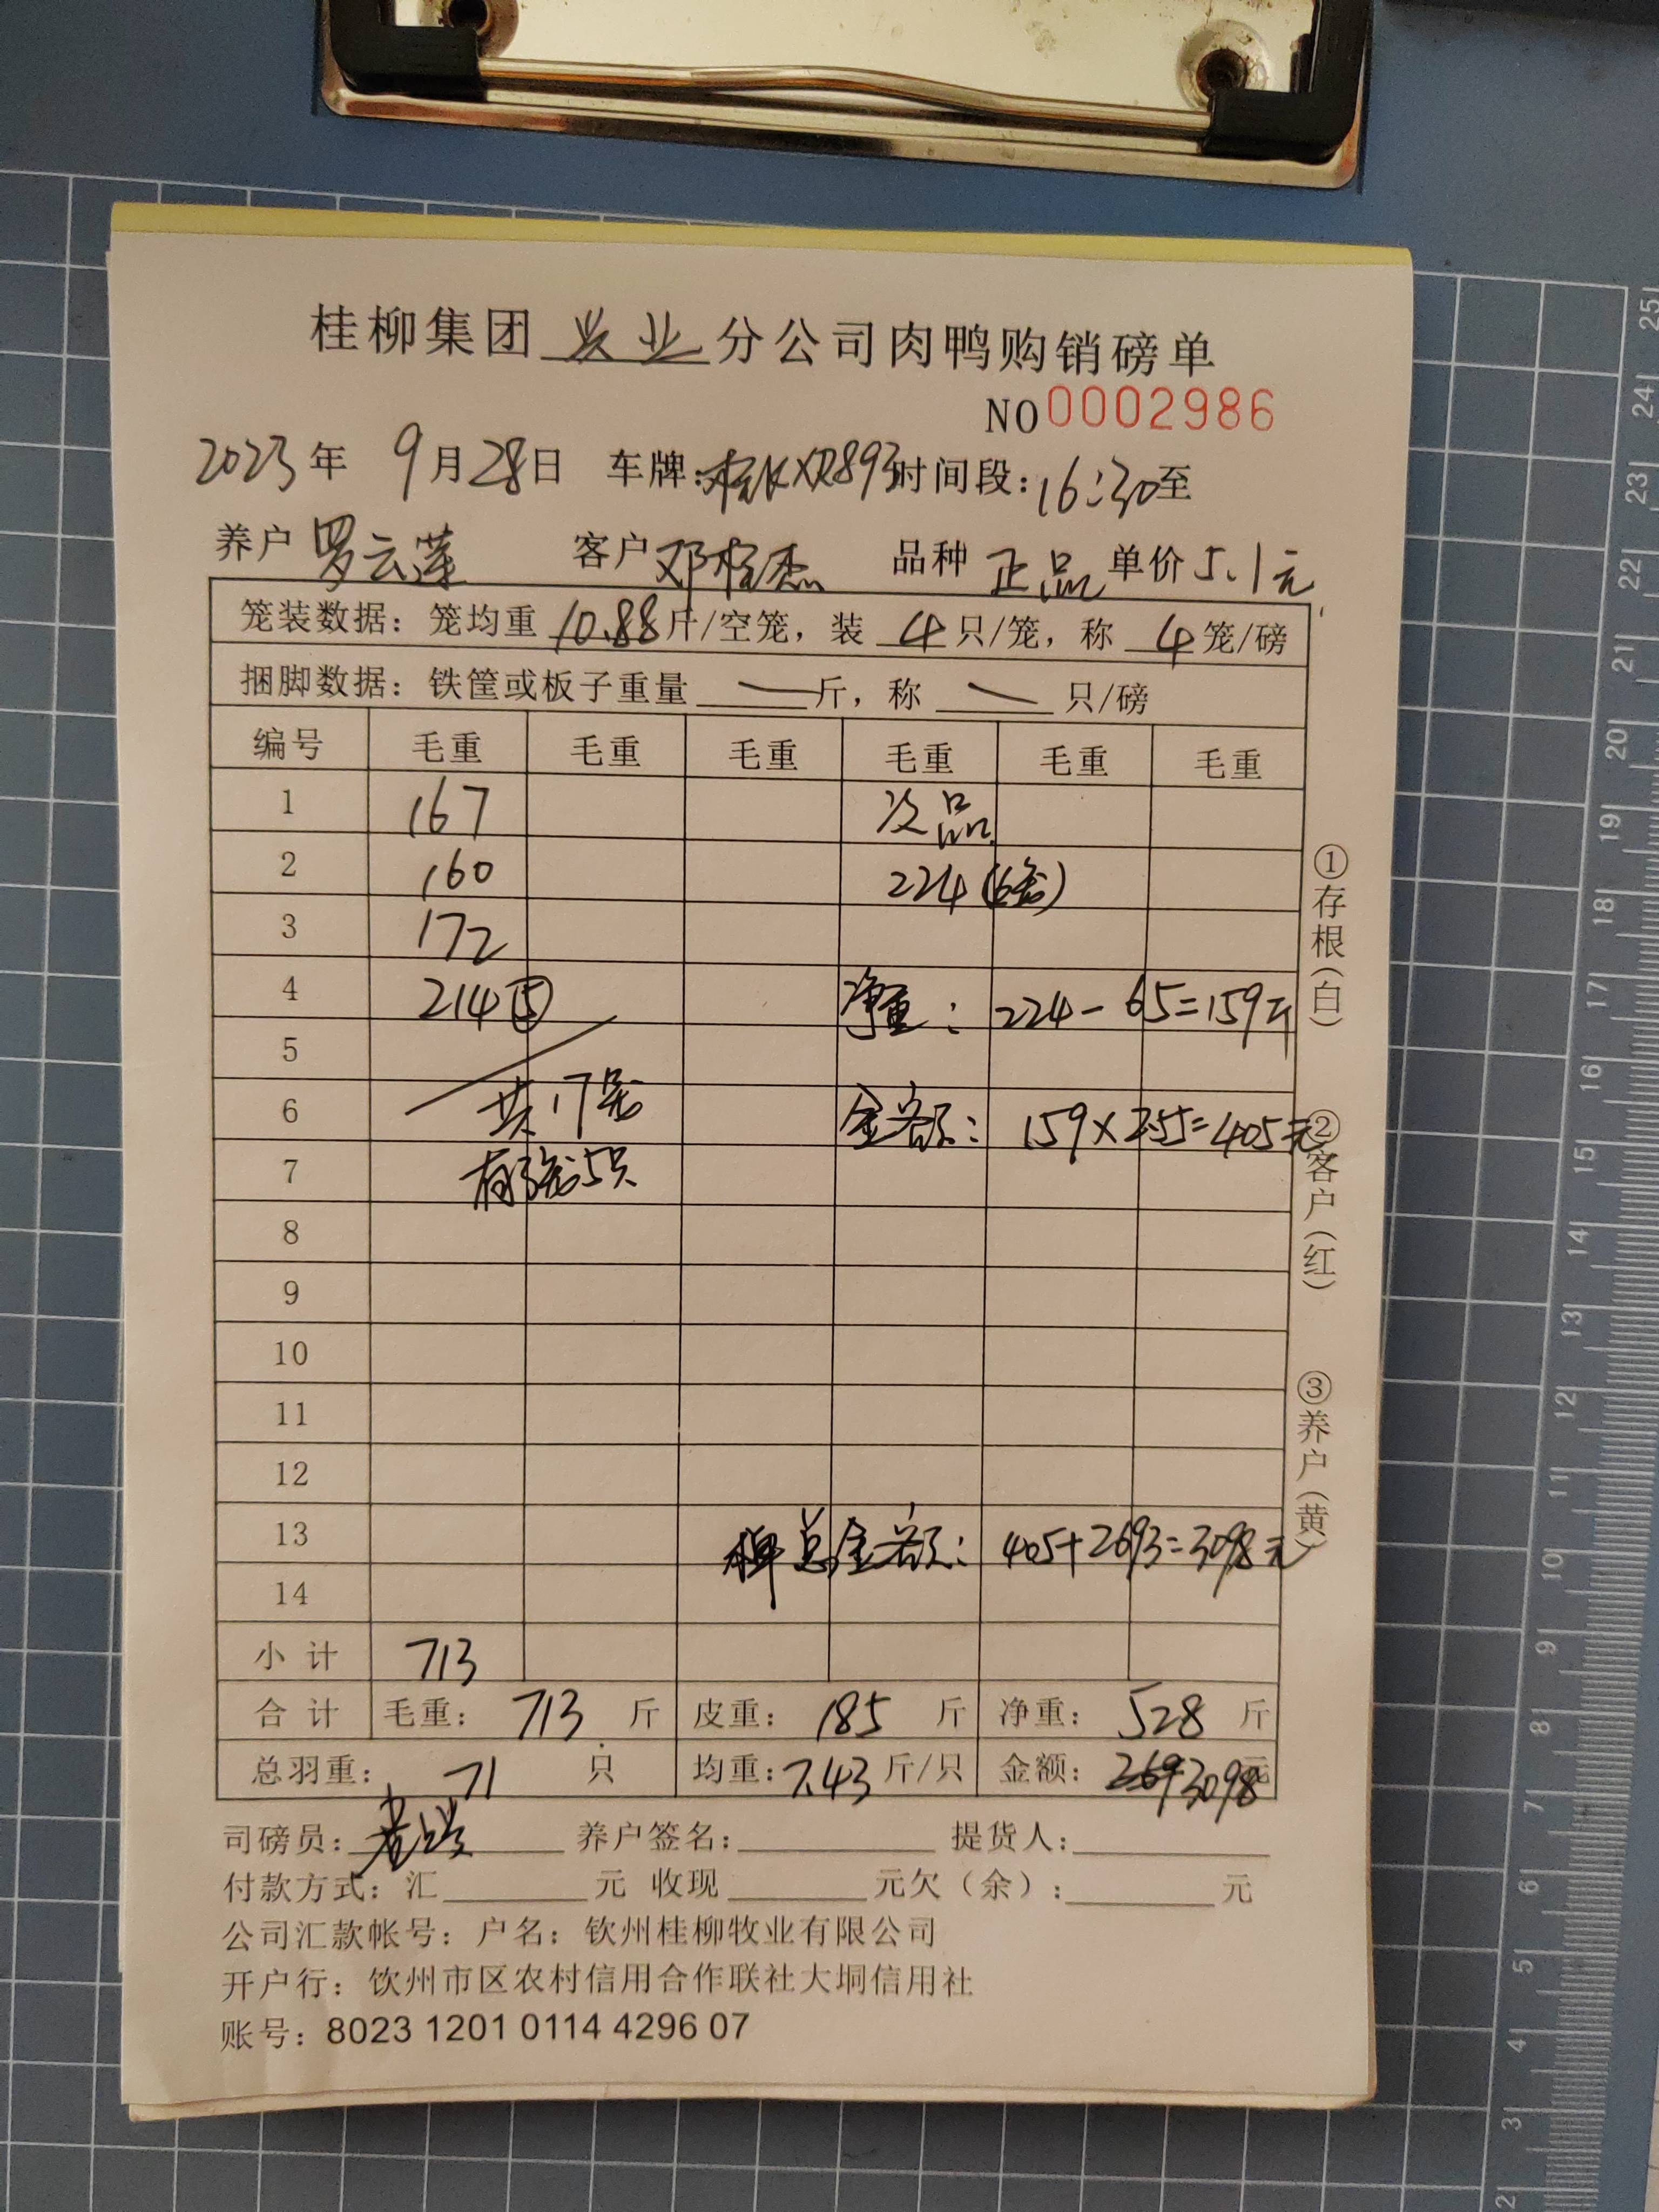 桂柳集团 兴业 分公司肉鸭购销磅单
NO 0002986
2023年 9月28日 车牌:桂KXR893 时间段:16:30至
养户 罗云莲 客户 邓桂杰 品种 正品 单价 5.1元
笼装数据:笼均重 10.88 斤/空笼,装 4 只/笼,称 4 笼/磅
捆脚数据:铁筐或板子重量 — 斤,称 — 只/磅
编号 毛重 毛重 毛重 毛重 毛重 毛重
1 167 次品
2 160 224(6笼)
3 172
4 214⑤ 净重: 224-65=159斤
5
6 共17笼 金额: 159×2.55=405元
7 有3笼5只
8
9
10
11
12
13 总金额: 405+2693=3098元
14
小计 713
合计 毛重: 713 斤 皮重: 185 斤 净重: 528 斤
总羽重: 71 只 均重: 7.43 斤/只 金额: 2693 3098 元
司磅员: 养户签名: 提货人:
付款方式:汇 元 收现 元欠(余): 元
公司汇款帐号:户名:钦州桂柳牧业有限公司
开户行:钦州市区农村信用合作联社大垌信用社
账号:8023 1201 0114 4296 07
①存根(白)
②客户(红)
③养户(黄)
25
24
23
22
21
20
19
18
17
16
15
14
13
12
11
10
9
8
7
6
5
4
3
2